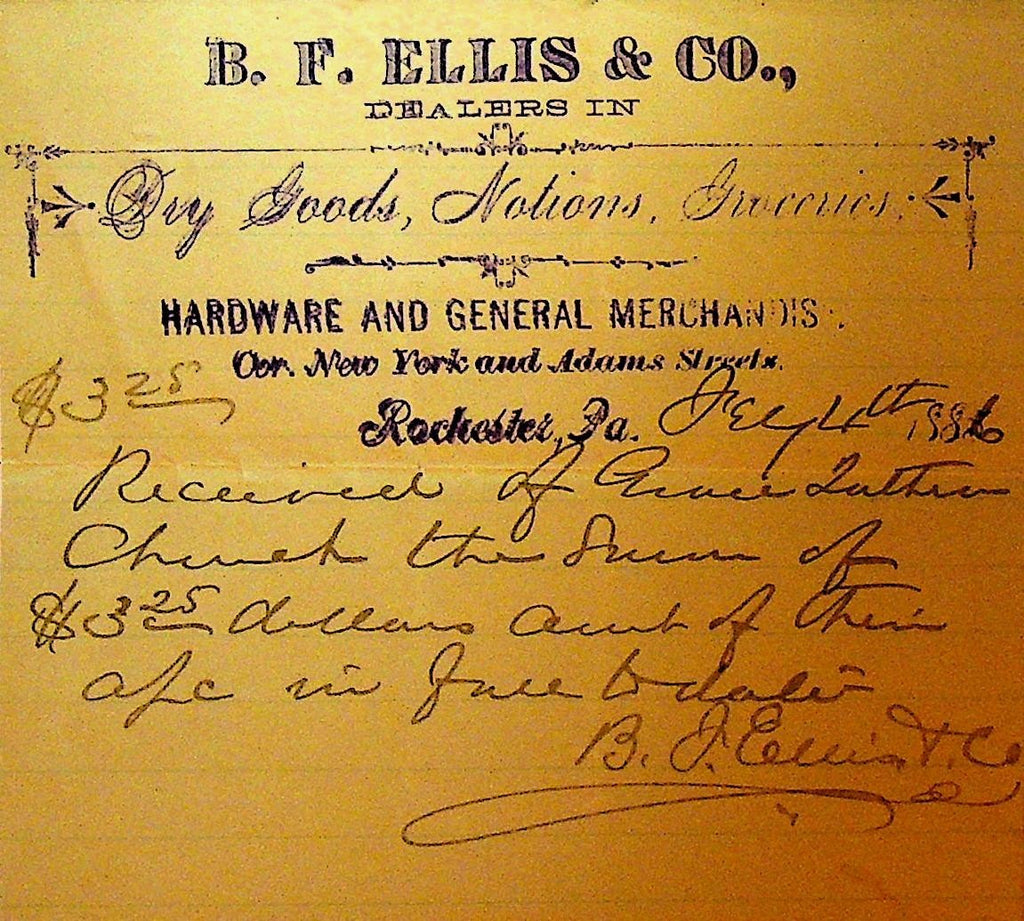 B. F. ELLIS & CO.,
DEALERS IN
Dry Goods, Notions, Groceries,
HARDWARE AND GENERAL MERCHANDISE.
Cor. New York and Adams Streets.
$3 25
Rochester, Pa. Feby 4th 1886
Received of Grace Luthern
Church the Sum of
$3 25 dollars amt of their
a/c in full to date
B. F. Ellis & Co